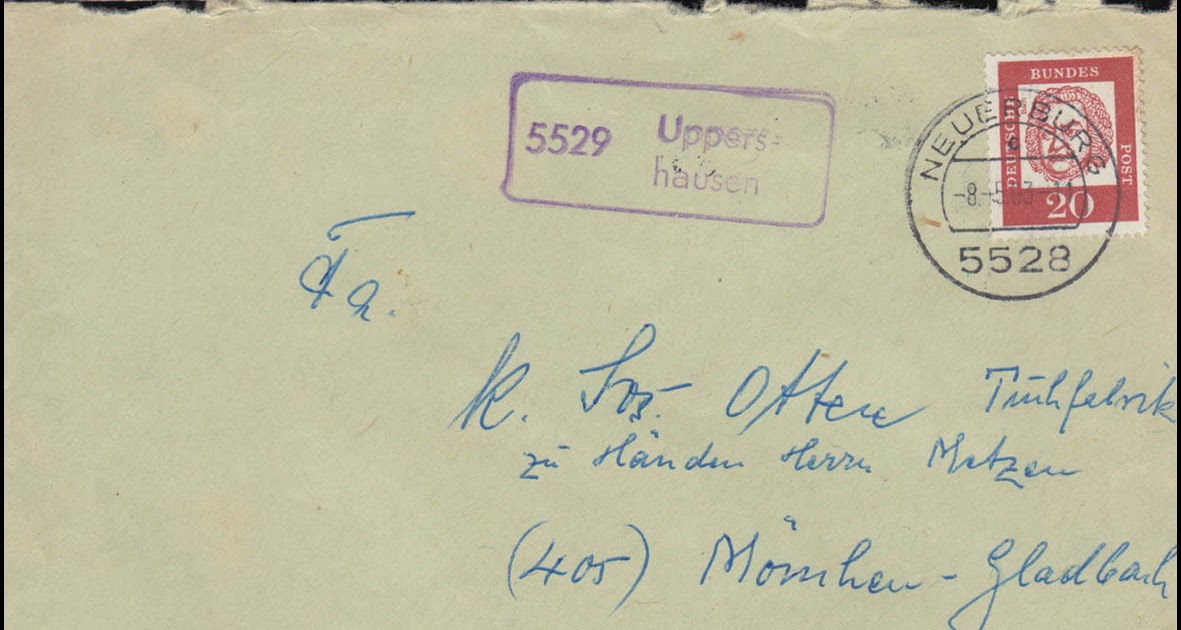 5529 Uppers-
hausen
BUNDES
POST
DEUTSCHE
20
NEUERBURG
c
-8.-5.63-11
5528
Fa.
K. Jos. Otten Tuchfabrik
zu Händen Herrn Metzen
(405) Mönchen-Gladbach